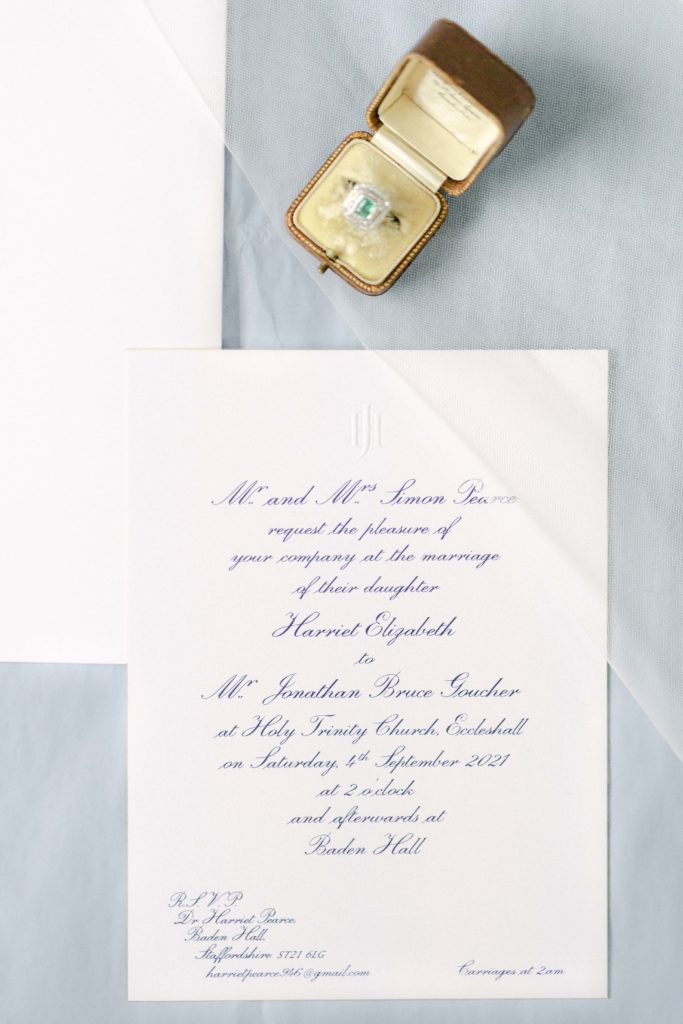 Mr. and Mrs. Simon Pearce
request the pleasure of
your company at the marriage
of their daughter
Harriet Elizabeth
to
Mr. Jonathan Bruce Goucher
at Holy Trinity Church, Eccleshall
on Saturday, 4th September 2021
at 2 o'clock
and afterwards at
Baden Hall
R.S.V.P.
Dr Harriet Pearce,
Baden Hall,
Staffordshire ST21 6LG
harrietpearce946@gmail.com
Carriages at 2am